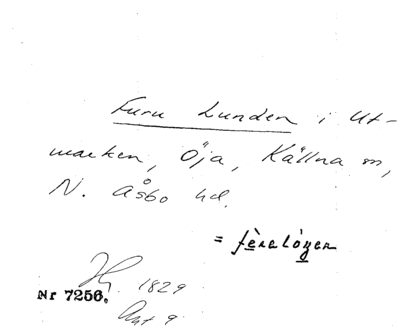 Furu Lunden i Ut-
marken, Öja, Källna sn,
N. Åsbo hd.
= fèrelózen
1829
Nr 7256.
Akt 9